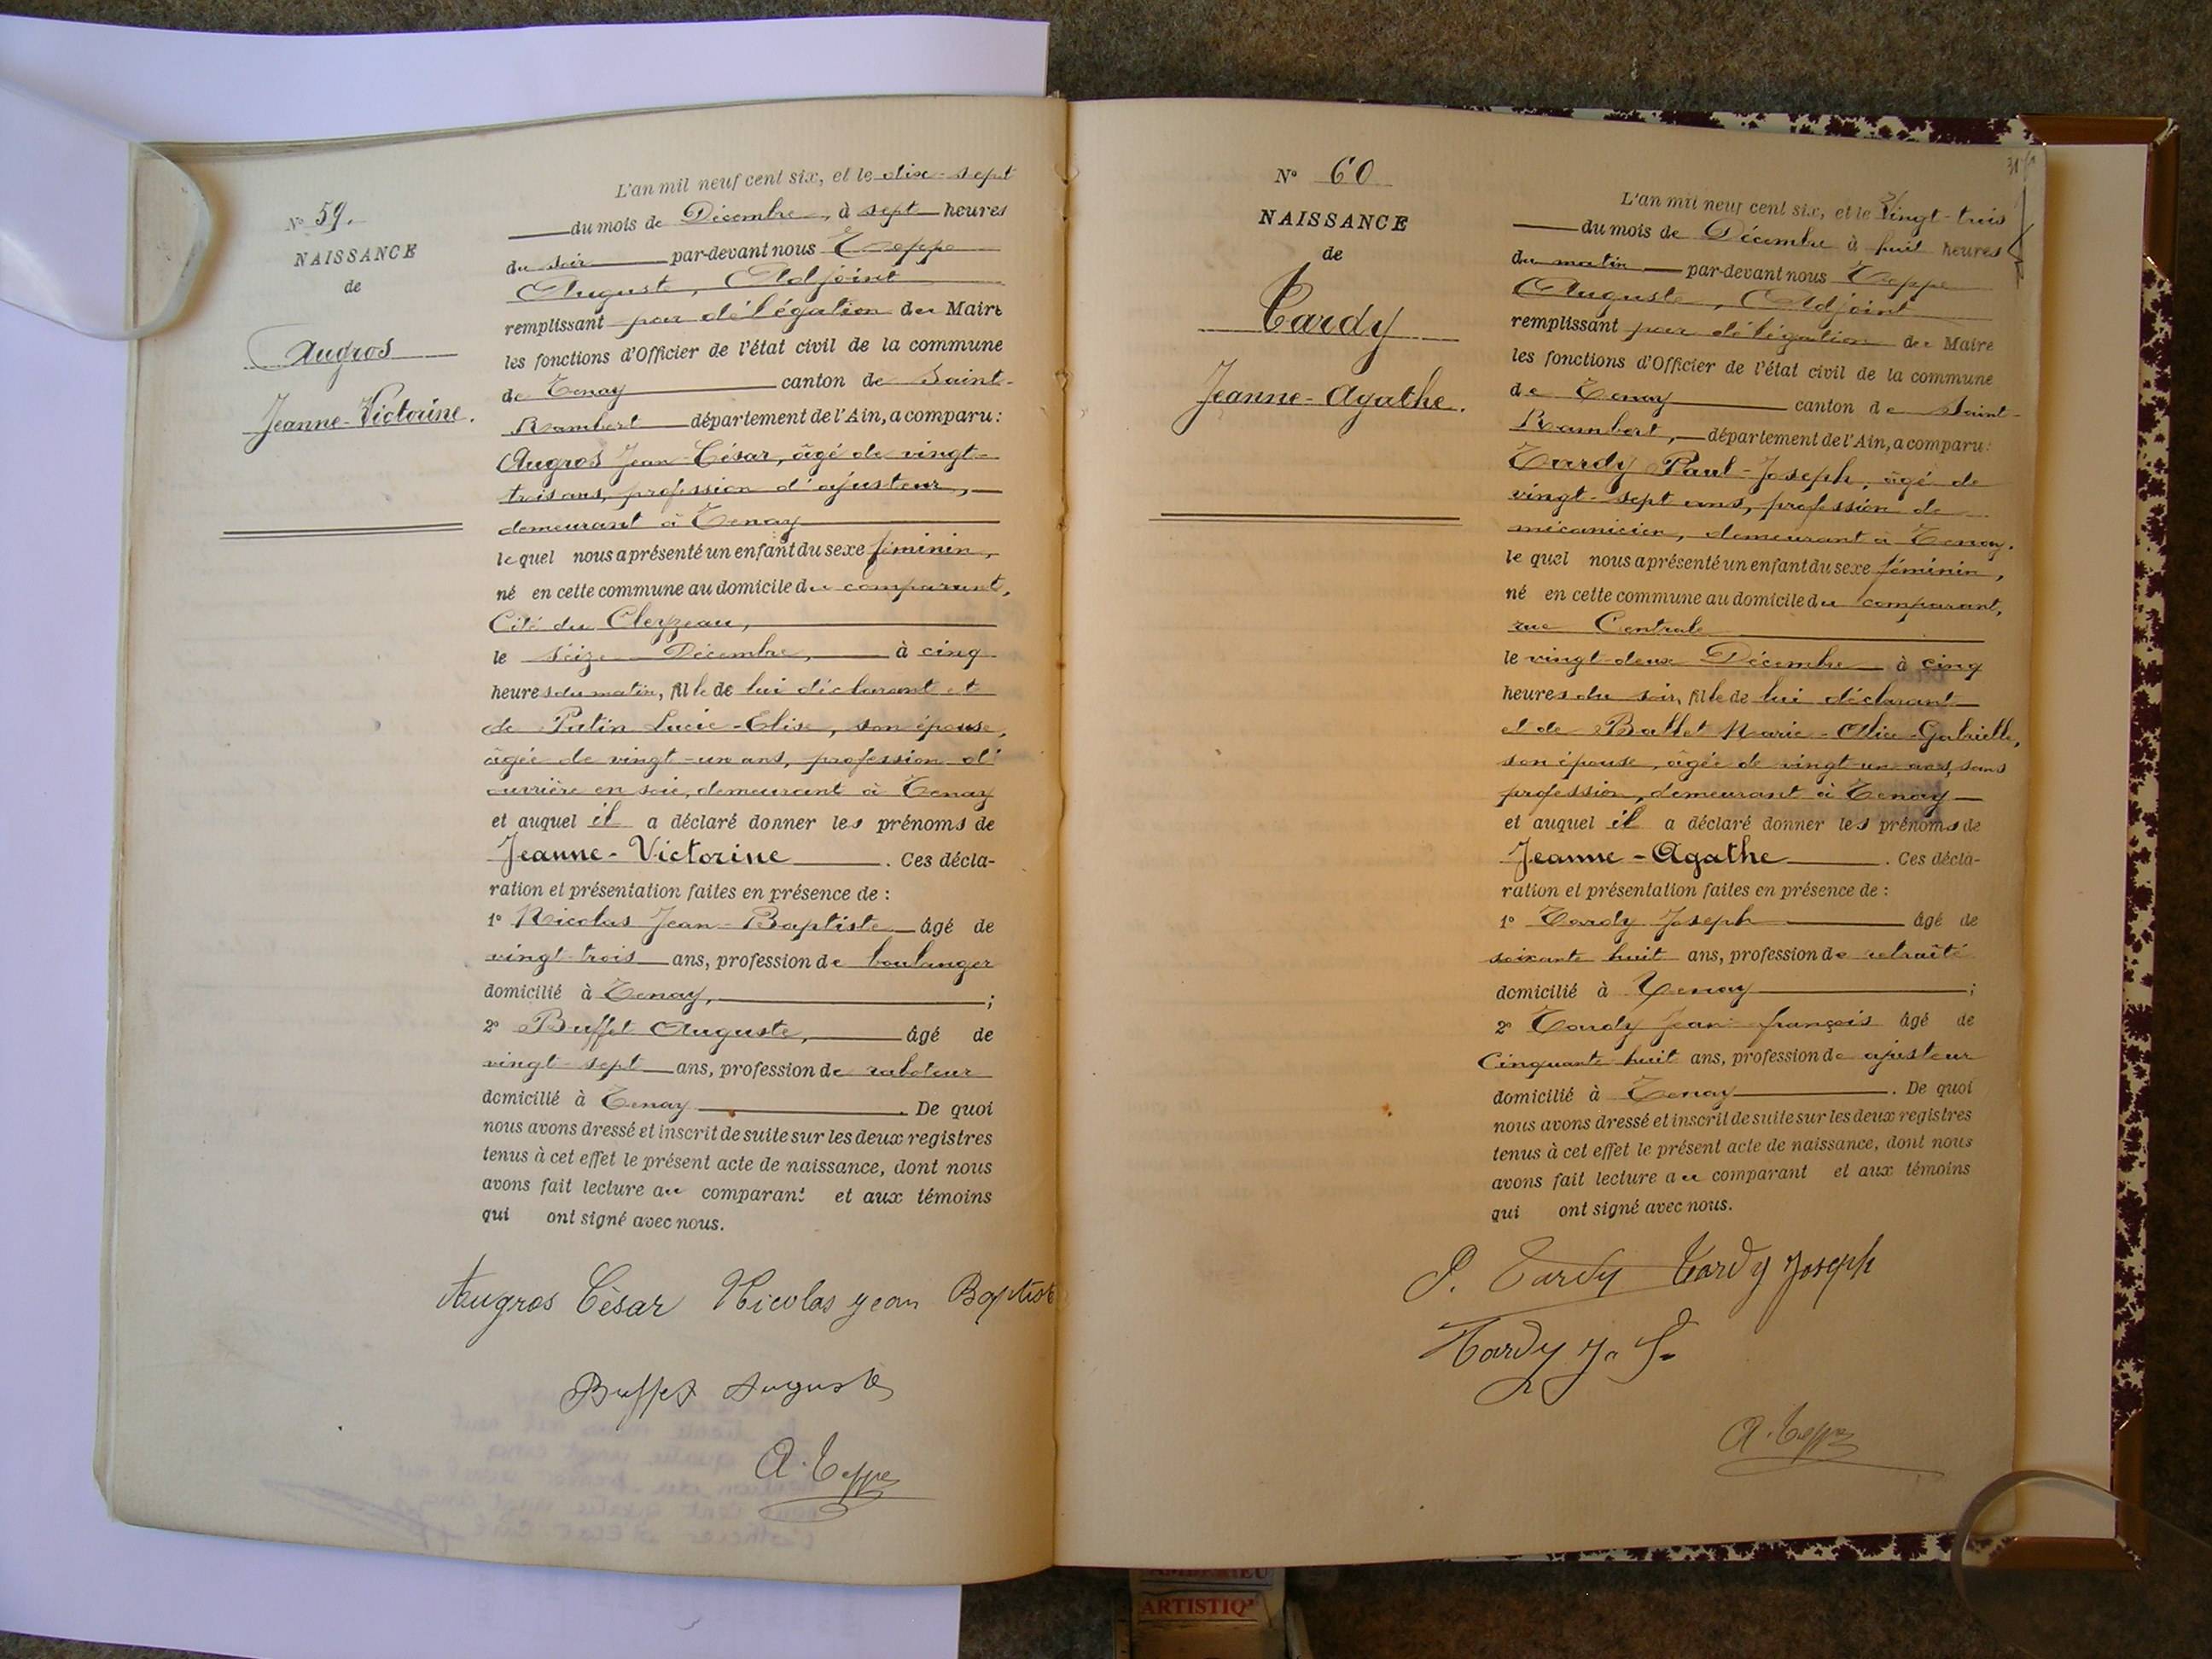 N° 59.
NAISSANCE
de
Augros
Jeanne-Victorine.
L'an mil neuf cent six, et le dix-sept
du mois de Décembre, à sept heures
du soir par-devant nous Teppe
Auguste, Adjoint
remplissant par délégation du Maire
les fonctions d'Officier de l'état civil de la commune
de Tenay canton de Saint-
Rambert département de l'Ain, a comparu:
Augros Jean-César, âgé de vingt-
trois ans, profession d'ajusteur,
demeurant à Tenay
lequel nous a présenté un enfant du sexe féminin,
né en cette commune au domicile du comparant,
Cité du Cleyzeau,
le seize Décembre, à cinq
heures du matin, fille de lui déclarant et
de Patin Lucie-Elise, son épouse,
âgée de vingt-un ans, profession d'
ouvrière en soie, demeurant à Tenay
et auquel il a déclaré donner les prénoms de
Jeanne-Victorine. Ces décla-
ration et présentation faites en présence de :
1° Nicolas Jean-Baptiste âgé de
vingt-trois ans, profession de boulanger
domicilié à Tenay, ;
2° Buffet Auguste, âgé de
vingt-sept ans, profession de raboteur
domicilié à Tenay. De quoi
nous avons dressé et inscrit de suite sur les deux registres
tenus à cet effet le présent acte de naissance, dont nous
avons fait lecture au comparant et aux témoins
qui ont signé avec nous.
Augros César Nicolas jean Baptiste
Buffet Auguste
A. Teppe
N° 60
NAISSANCE
de
Tardy
Jeanne-Agathe.
L'an mil neuf cent six, et le vingt-trois
du mois de Décembre à huit heures
du matin par-devant nous Teppe
Auguste, Adjoint
remplissant par délégation du Maire
les fonctions d'Officier de l'état civil de la commune
de Tenay canton de Saint-
Rambert, département de l'Ain, a comparu:
Tardy Paul-Joseph, âgé de
vingt-sept ans, profession de
mécanicien, demeurant à Tenay.
lequel nous a présenté un enfant du sexe féminin,
né en cette commune au domicile du comparant,
rue Centrale
le vingt-deux Décembre à cinq
heures du soir, fille de lui déclarant
et de Ballet Marie-Alice-Gabrielle,
son épouse, âgée de vingt-un ans, sans
profession, demeurant à Tenay
et auquel il a déclaré donner les prénoms de
Jeanne-Agathe. Ces décla-
ration et présentation faites en présence de :
1° Tardy Joseph âgé de
soixante huit ans, profession de retraité
domicilié à Tenay ;
2° Tardy Jean françois âgé de
Cinquante huit ans, profession de ajusteur
domicilié à Tenay. De quoi
nous avons dressé et inscrit de suite sur les deux registres
tenus à cet effet le présent acte de naissance, dont nous
avons fait lecture au comparant et aux témoins
qui ont signé avec nous.
P. Tardy Tardy Joseph
Tardy J. F.
A. Teppe
AMBERIEU
ARTISTIQ'